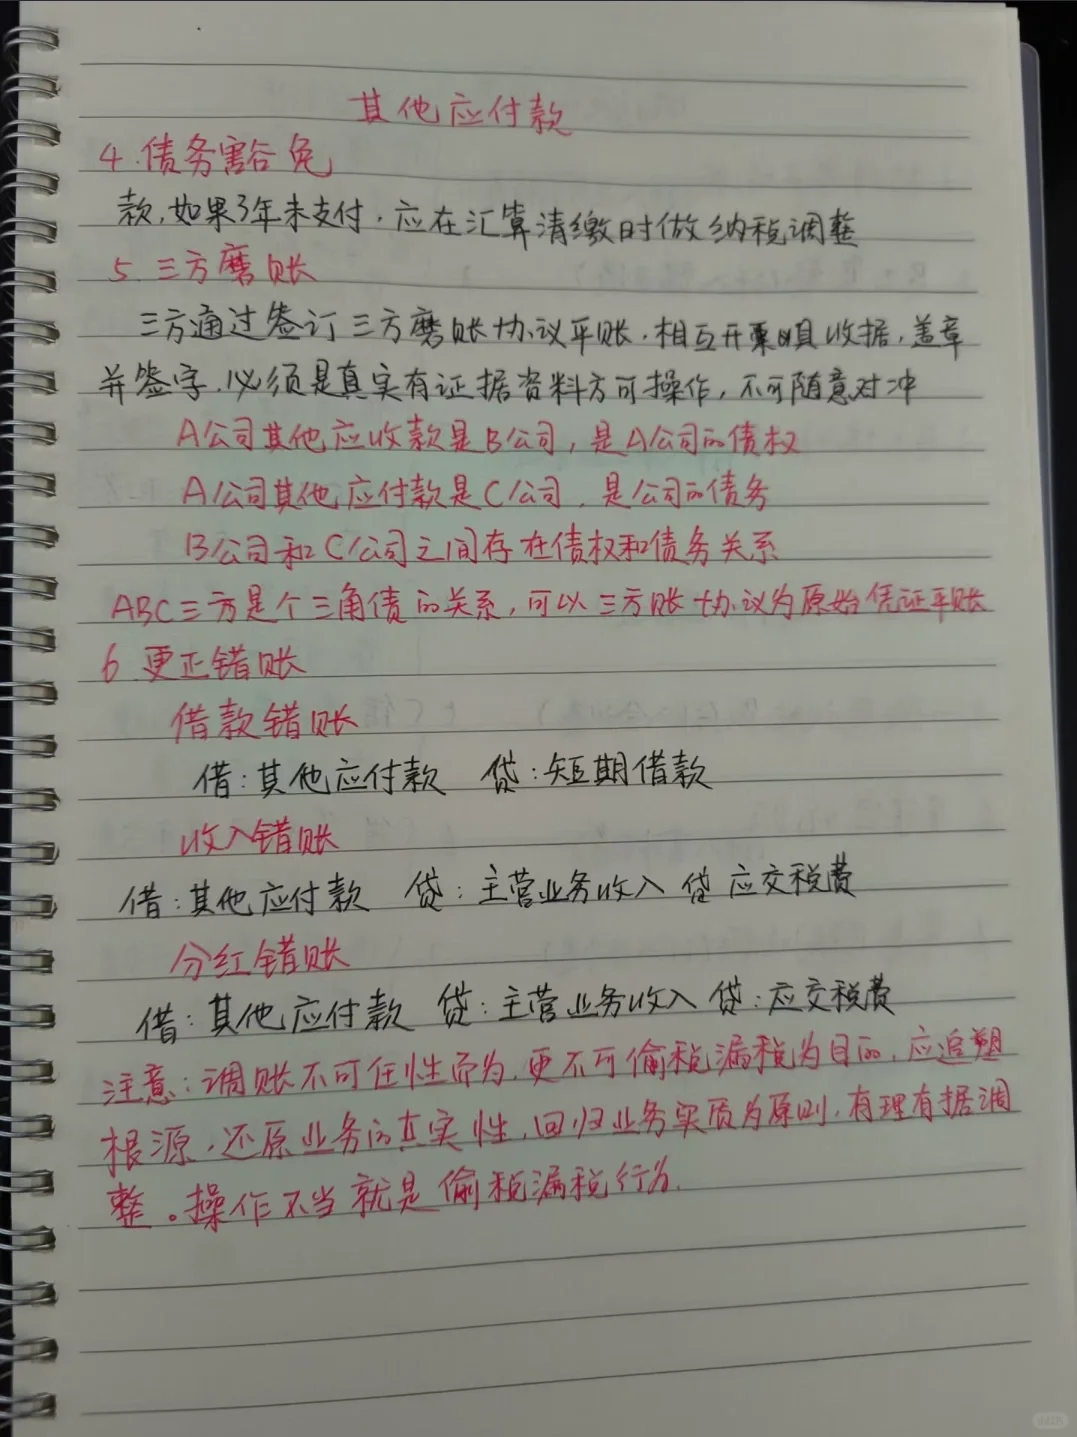 其他应付款
4.债务豁免
款,如果3年未支付,应在汇算清缴时做纳税调整
5.三方磨账
三方通过签订三方磨账协议平账,相互开票 收据,盖章
并签字,必须是真实有证据资料方可操作,不可随意对冲
A公司其他应收款是B公司,是A公司的债权
A公司其他应付款是C公司,是公司的债务
B公司和C公司之间存在债权和债务关系
ABC三方是个三角债的关系,可以三方账协议为原始凭证平账
6.更正错账
借款错账
借:其他应付款 贷:短期借款
收入错账
借:其他应付款 贷:主营业务收入 贷 应交税费
分红错账
借:其他应付款 贷:主营业务收入 贷:应交税费
注意:调账不可任性而为,更不可偷税漏税为目的,应追塑
根源,还原业务的真实性,回归业务实质为原则,有理有据调
整。操作不当就是偷税漏税行为.